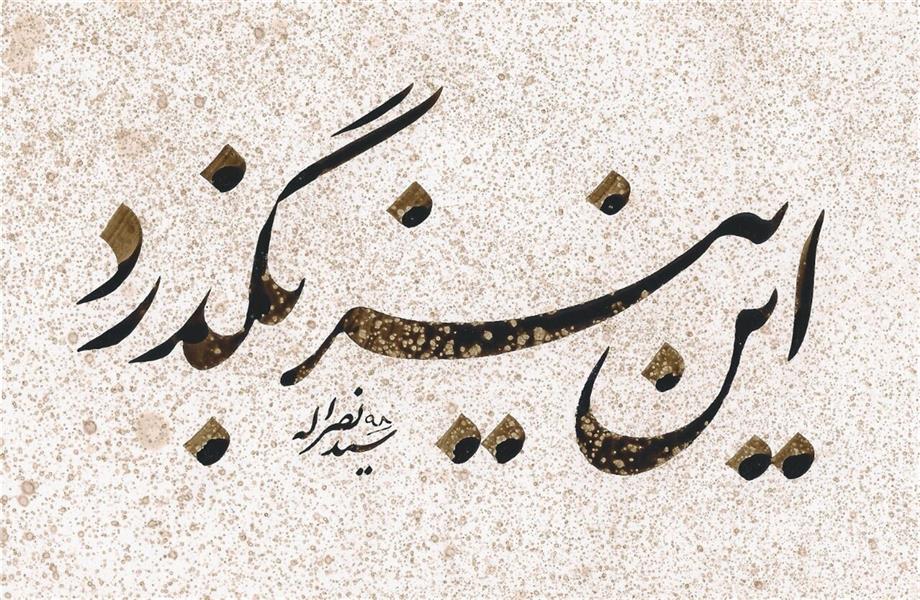 این نیز بگذرد
سید نصراله ۹۸